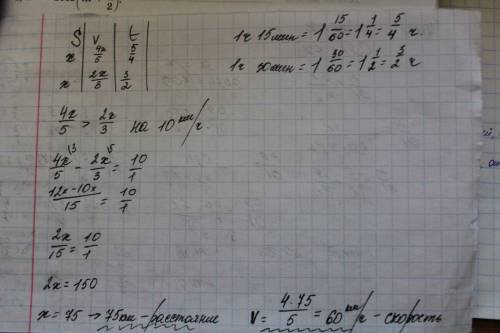 S | v | t
x | 4x/5 | 5/4
x | 2x/3 | 3/2
1ч 15мин = 1 15/60 = 1 1/4 = 5/4 ч.
1ч 30мин = 1 30/60 = 1 1/2 = 3/2 ч
4x/5 > 2x/3 на 10 км/ч.
4x/5 \3 - 2x/3 \5 = 10/1
12x-10x/15 = 10/1
2x/15 = 10/1
2x = 150
x = 75 → 75км - расстояние
V = 4·75/5 = 60 км/ч - скорость